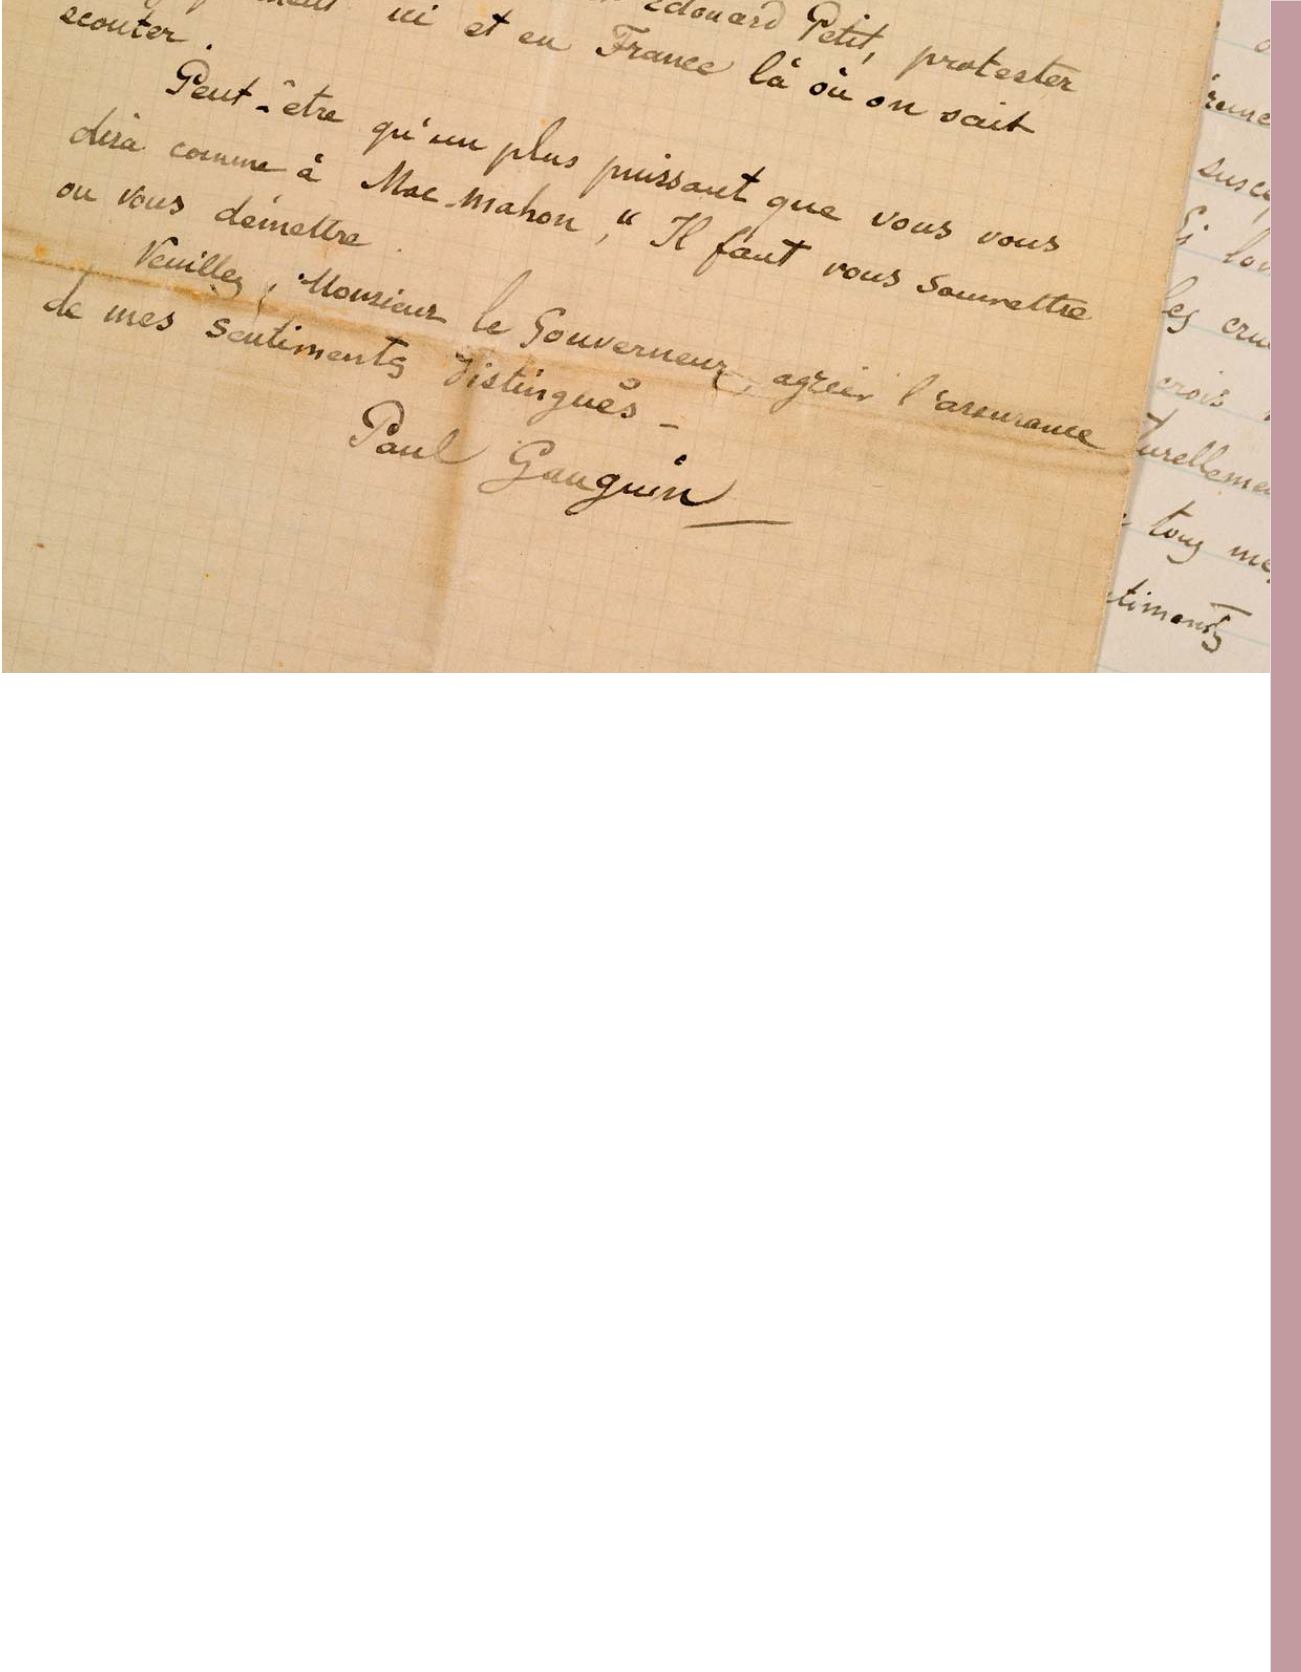 Edouard Petit, protester
ici et en France là où on sait
écouter.
Peut-être qu'un plus puissant que vous vous
dira comme à Mac-Mahon, " Il faut vous soumettre
ou vous démettre.
Veuillez, Monsieur le Gouverneur, agréer l'assurance
de mes sentiments distingués _
Paul Gauguin
susce
Si l'on
les
crois
turellemen
tous mes
timents